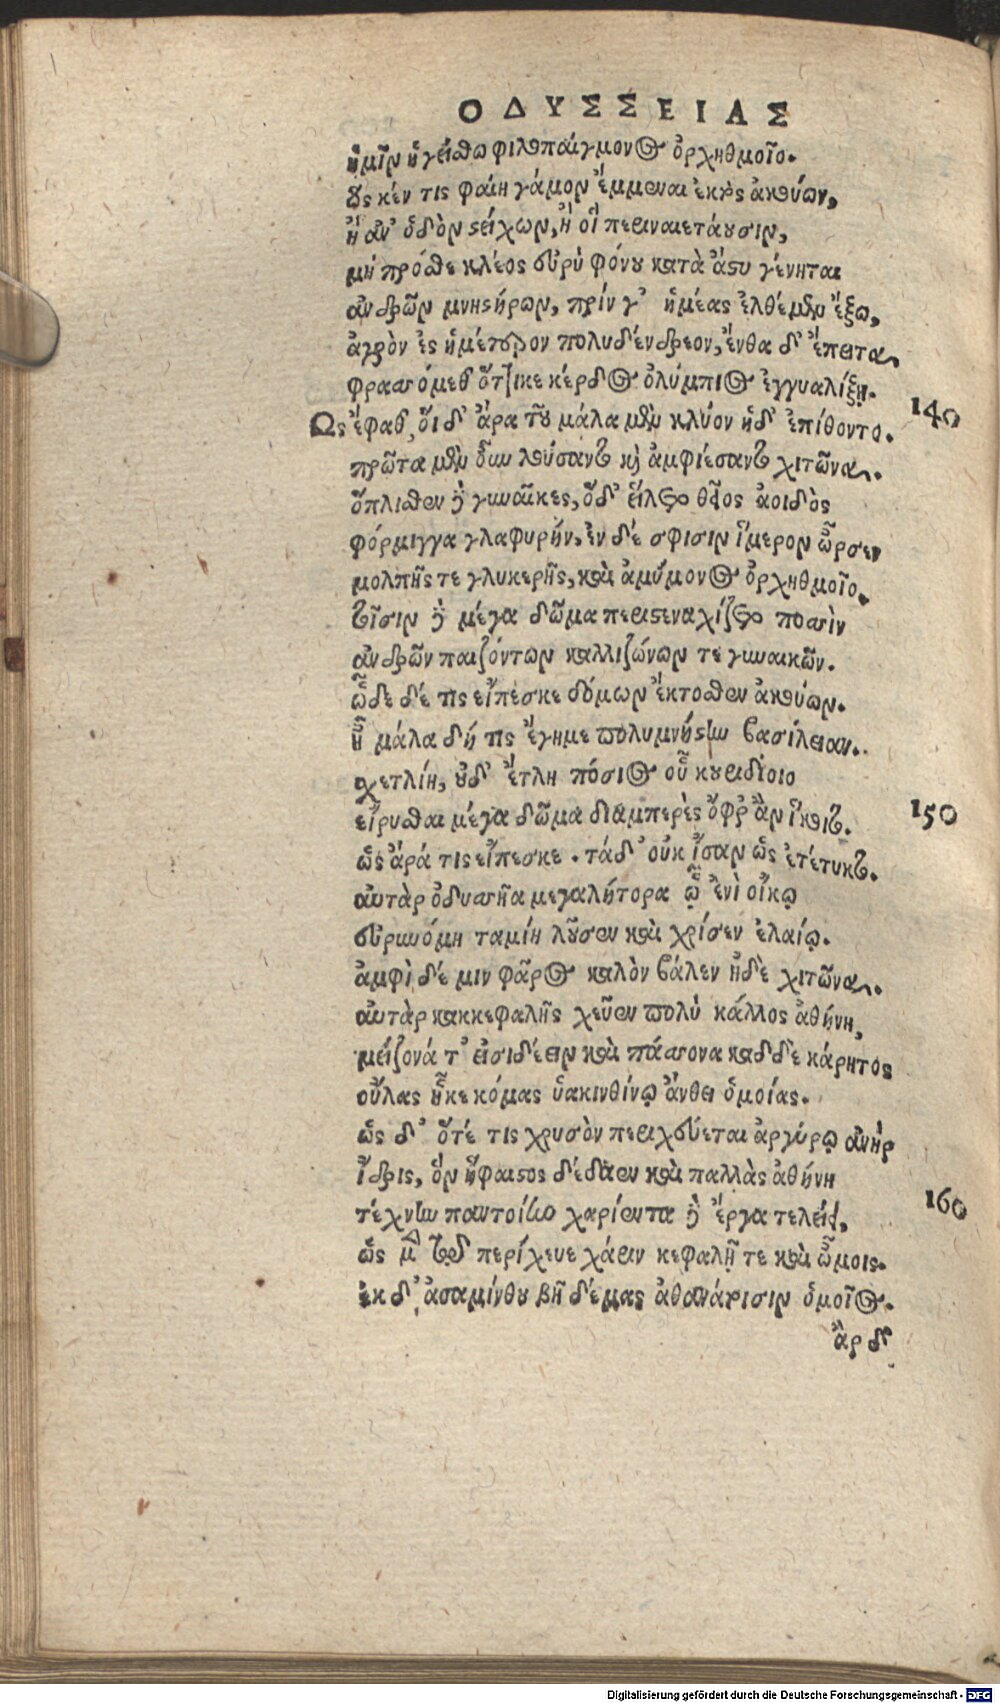 ΟΔΥΣΣΕΙΑΣ
ἡμῖν ἡγείσθω φιλοπαίγμονος ὀρχηθμοῖο.
ὥς κέν τις φαίη γάμον ἔμμεναι ἐκτὸς ἀκούων,
ἢ ἀν' ὁδὸν στείχων, ἢ οἳ περιναιετάουσιν,
μὴ πρόσθε κλέος εὐρὺ φόνου κατὰ ἄστυ γένηται
ἀνδρῶν μνηστήρων, πρίν γ' ἡμέας ἐλθέμεν ἔξω,
ἀγρὸν ἐς ἡμέτερον πολυδένδρεον, ἔνθα δ' ἔπειτα
φρασσόμεθ' ὅττι κε κέρδος ὀλύμπιος ἐγγυαλίξῃ.
140
Ως ἔφαθ', οἵ δ' ἄρα τοῦ μάλα μὲν κλύον ἠδ' ἐπίθοντο.
πρῶτα μὲν οὖν λούσαντο καὶ ἀμφιέσαντο χιτῶνα.
ὅπλισθεν δὲ γυναῖκες, ὅδ' εἵλετο θεῖος ἀοιδὸς
φόρμιγγα γλαφυρήν, ἐν δέ σφισιν ἵμερον ὦρσεν
μολπῆς τε γλυκερῆς, καὶ ἀμύμονος ὀρχηθμοῖο.
τοῖσιν δὲ μέγα δῶμα περιστεναχίζετο ποσσὶν
ἀνδρῶν παιζόντων καλλιζώνων τε γυναικῶν.
ὧδε δέ τις εἴπεσκε δόμων ἔκτοσθεν ἀκούων.
ἦ μάλα δή τις ἔγημε πολυμνήστην βασίλειαν.
σχετλίη, οὐδ' ἔτλη πόσιος οὗ κουριδίοιο
εἴρυσθαι μέγα δῶμα διαμπερὲς ὄφρ' ἂν ἵκοιτο.
150
ὣς ἄρά τις εἴπεσκε. τάδ' οὐκ ἴσαν ὡς ἐτέτυκτο.
αὐτὰρ ὀδυσσῆα μεγαλήτορα ᾧ ἐνὶ οἴκῳ
εὐρυνόμη ταμίη λοῦσεν καὶ χρίσεν ἐλαίῳ.
ἀμφὶ δέ μιν φᾶρος καλὸν βάλεν ἠδὲ χιτῶνα.
αὐτὰρ κακκεφαλῆς χεῦεν πολὺ κάλλος ἀθήνη,
μείζονά τ' εἰσιδέειν καὶ πάσσονα καδδὲ κάρητος
οὔλας ἧκε κόμας ὑακινθίνῳ ἄνθει ὁμοίας.
ὡς δ' ὅτέ τις χρυσὸν περιχεύεται ἀργύρῳ ἀνὴρ
ἴδρις, ὃν ἥφαιστος δέδαεν καὶ παλλὰς ἀθήνη
τέχνην παντοίην χαρίεντα δὲ ἔργα τελείει,
160
ὣς μὲν τῷ περίχευε χάριν κεφαλῇ τε καὶ ὤμοις.
ἐκ δ' ἀσαμίνθου βῆ δέμας ἀθανάτοισιν ὁμοῖος.
ἂψ δ'
Digitalisierung gefördert durch die Deutsche Forschungsgemeinschaft - DFG